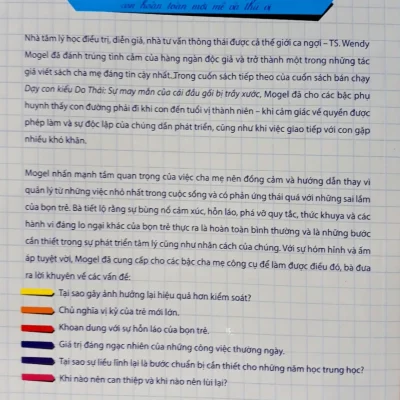 con hoàn toàn mới mẻ và thú vị
Nhà tâm lý học điều trị, diễn giả, nhà tư vấn thông thái được cả thế giới ca ngợi – TS. Wendy
Mogel đã đánh trúng tình cảm của hàng ngàn độc giả và trở thành một trong những tác
giả viết sách cha mẹ đáng tin cậy nhất. Trong cuốn sách tiếp theo của cuốn sách bán chạy
Dạy con kiểu Do Thái: Sự may mắn của cái đầu gối bị trầy xước, Mogel đã cho các bậc phụ
huynh thấy con đường phải đi khi con đến tuổi vị thành niên – khi cảm giác về quyền được
phép làm và sự độc lập của chúng dần phát triển, cũng như khi việc giao tiếp với con gặp
nhiều khó khăn.
Mogel nhấn mạnh tầm quan trọng của việc cha mẹ nên đồng cảm và hướng dẫn thay vì
quản lý từ những việc nhỏ nhất trong cuộc sống và có phản ứng thái quá với những sai lầm
của bọn trẻ. Bà tiết lộ rằng sự bùng nổ cảm xúc, hỗn láo, phá vỡ quy tắc, thức khuya và các
hành vi đáng lo ngại khác của bọn trẻ thực ra là hoàn toàn bình thường và là những bước
cần thiết trong sự phát triển tâm lý cũng như nhân cách của chúng. Với sự hóm hỉnh và ấm
áp tuyệt vời, Mogel đã cung cấp cho các bậc cha mẹ công cụ để làm được điều đó, bà đưa
ra lời khuyên về các vấn đề:
Tại sao gây ảnh hưởng lại hiệu quả hơn kiểm soát?
Chủ nghĩa vị kỷ của trẻ mới lớn.
Khoan dung với sự hỗn láo của bọn trẻ.
Giá trị đáng ngạc nhiên của những công việc thường ngày.
Tại sao sự liều lĩnh lại là bước chuẩn bị cần thiết cho những năm học trung học?
Khi nào nên can thiệp và khi nào nên lùi lại?